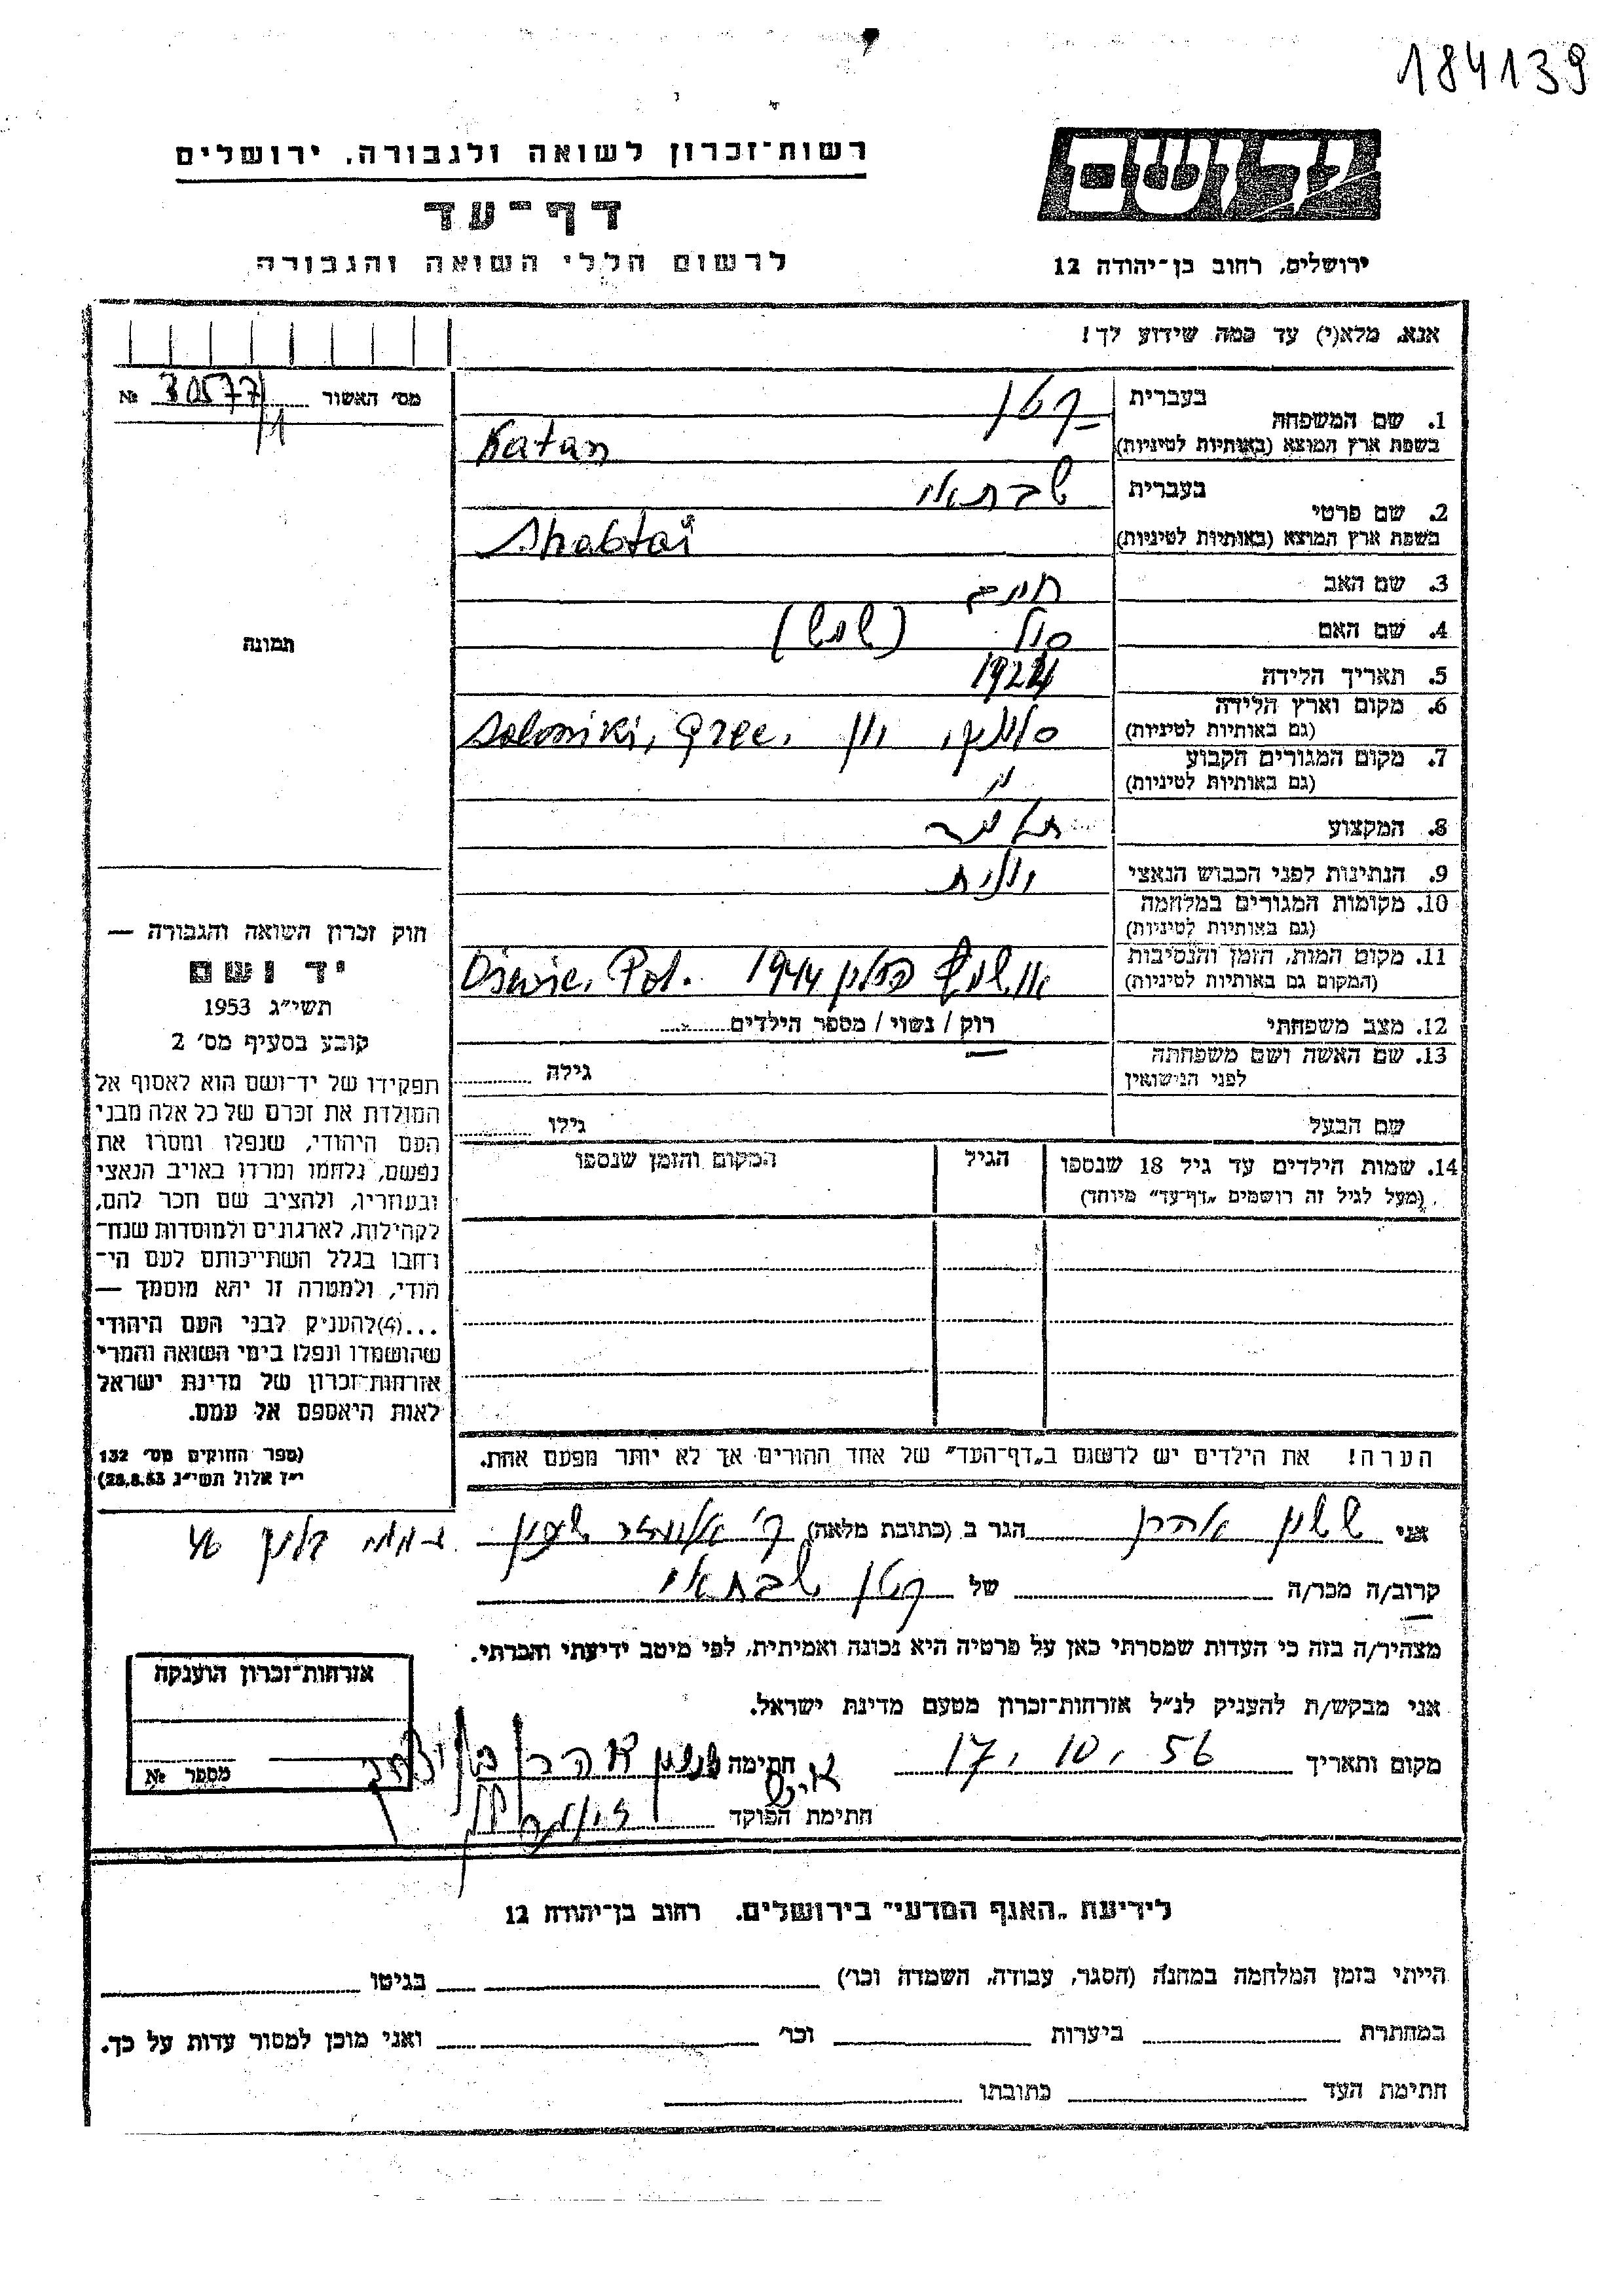 184139
יד ושם
רשות־זכרון לשואה ולגבורה, ירושלים
דף־עד
לרשום חללי השואה והגבורה
ירושלים, רחוב בן־יהודה 12
אנא, מלא(י) עד כמה שידוע לך!
מס' האשור 30577 №
1
1. שם המשפחה בעברית קטן
בשפת ארץ המוצא (באותיות לטיניות) Katan
2. שם פרטי בעברית שבתאי
בשפת ארץ המוצא (באותיות לטיניות) Shabtaï
3. שם האב חיים
4. שם האם סול (ששון)
5. תאריך הלידה 1924
6. מקום וארץ הלידה סלוניקי, יון Saloniki, Gree.
(גם באותיות לטיניות)
7. מקום המגורים הקבוע
(גם באותיות לטיניות)
8. המקצוע תלמיד
9. הנתינות לפני הכבוש הנאצי יונית
10. מקומות המגורים במלחמה
(גם באותיות לטיניות)
11. מקום המות, הזמן והנסיבות אושויץ פולין 1944 Oswie. Pol.
(המקום גם באותיות לטיניות)
12. מצב משפחתי רוק / נשוי / מספר הילדים
13. שם האשה ושם משפחתה גילה
לפני הנישואין
שם הבעל גילו
14. שמות הילדים עד גיל 18 שנספו הגיל המקום והזמן שנספו
(מעל לגיל זה רושמים „דף־עד" מיוחד)
הערה! את הילדים יש לרשום ב„דף־העד" של אחד ההורים אך לא יותר מפעם אחת.
תמונה
חוק זכרון השואה והגבורה —
יד ושם
תשי"ג 1953
קובע בסעיף מס' 2
תפקידו של יד־ושם הוא לאסוף אל
המולדת את זכרם של כל אלה מבני
העם היהודי, שנפלו ומסרו את
נפשם, נלחמו ומרדו באויב הנאצי
ובעוזריו, ולהציב שם וזכר להם,
לקהילות, לארגונים ולמוסדות שנח־
רבו בגלל השתייכותם לעם הי־
הודי, ולמטרה זו יהא מוסמך —
...(4)להעניק לבני העם היהודי
שהושמדו ונפלו בימי השואה והמרי
אזרחות־זכרון של מדינת ישראל
לאות היאספם אל עמם.
(ספר החוקים מס' 132
י"ז אלול תשי"ג 28.8.53)
אני ששון אהרן הגר ב (כתובת מלאה) 46
קרוב/ה מכר/ה של קטן שבתאי
מצהיר/ה בזה כי העדות שמסרתי כאן על פרטיה היא נכונה ואמיתית, לפי מיטב ידיעתי והכרתי.
אני מבקש/ת להעניק לנ"ל אזרחות־זכרון מטעם מדינת ישראל.
מקום ותאריך 17. 10. 56 חתימה ששון אהרן
חתימת הפוקד
אזרחות־זכרון הוענקה
מספר №
לידיעת „האגף המדעי" בירושלים. רחוב בן־יהודה 12
הייתי בזמן המלחמה במחנה (הסגר, עבודה, השמדה וכו') בגיטו
במחתרת ביערות וכו' ואני מוכן למסור עדות על כך.
חתימת העד כתובתו